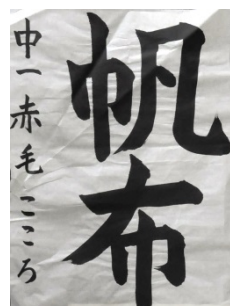 帆布
中一 赤毛 こころ